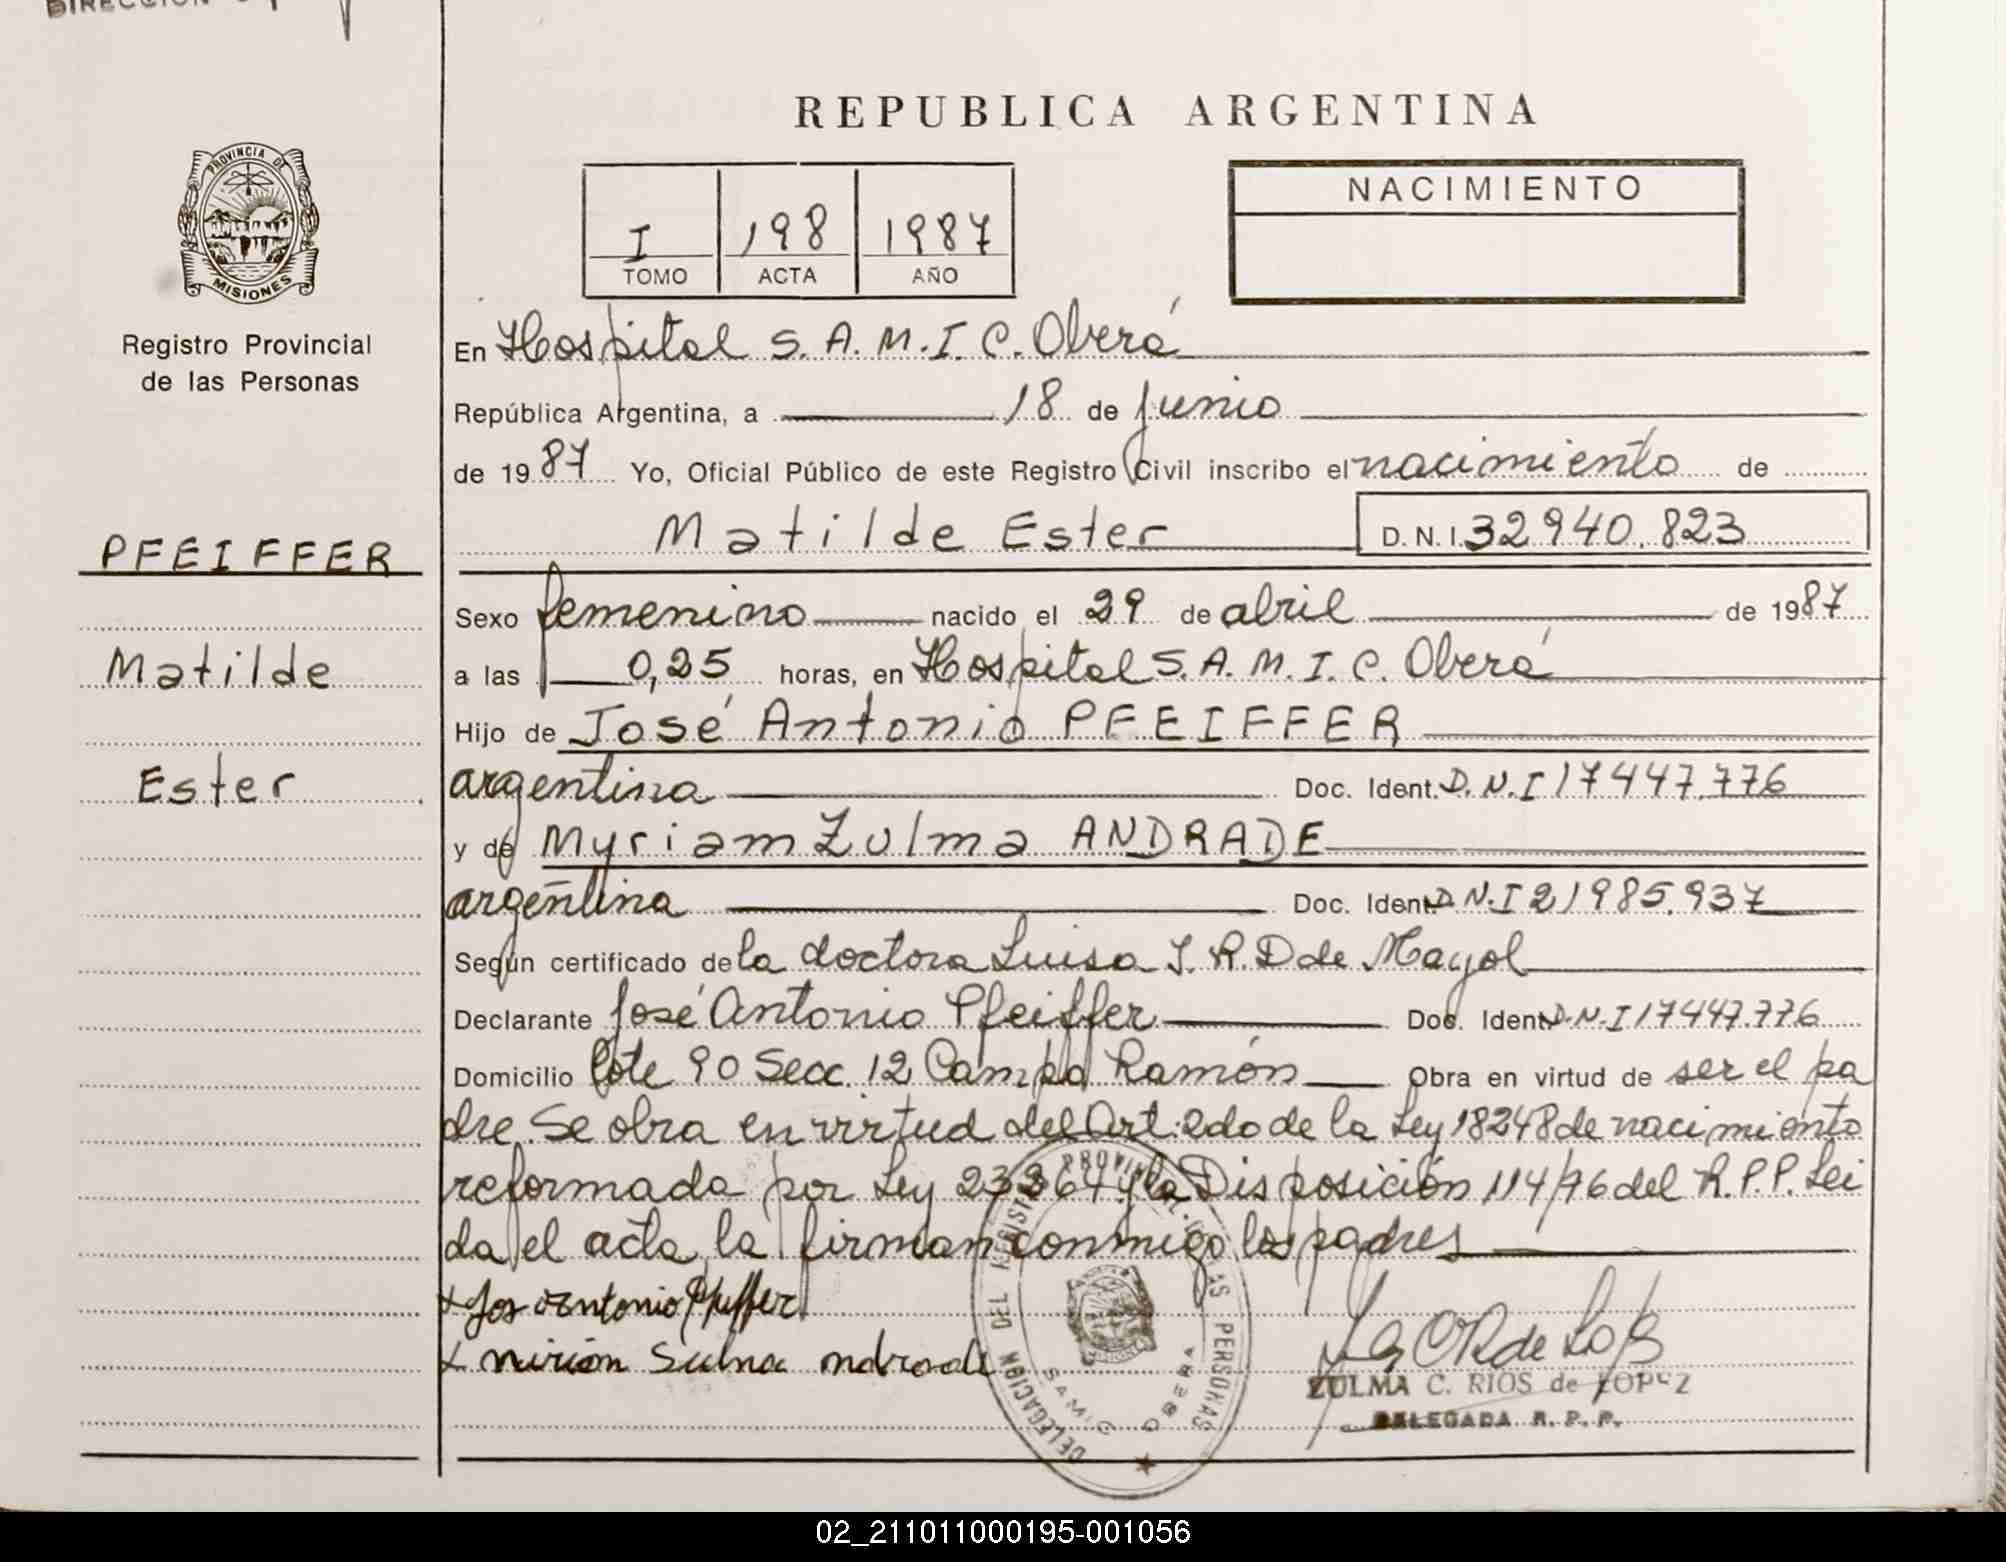 DIRECCION
REPUBLICA ARGENTINA
PROVINCIA DE
MISIONES
Registro Provincial
de las Personas
I 198 1987
TOMO ACTA AÑO
NACIMIENTO
En Hospital S. A. M. I. C. Oberá
República Argentina, a 18 de junio
de 1987 Yo, Oficial Público de este Registro Civil inscribo el nacimiento de
PFEIFFER
Matilde Ester D.N.I. 32940.823
Sexo femenino nacido el 29 de abril de 1987
Matilde
a las 0,25 horas, en Hospital S. A. M. I. C. Oberá
Hijo de José Antonio PFEIFFER
Ester
argentina Doc. Ident. D.N.I 17447.776
y de Myriam Zulma ANDRADE
argentina Doc. Ident. D.N.I 21985.937
Según certificado de la doctora Luisa J. R. D de Mayol
Declarante José Antonio Pfeiffer Doc. Ident. D.N.I 17447.776
Domicilio lote 90 Secc. 12 Campo Ramón Obra en virtud de ser el pa
dre. Se obra en virtud del Art. 2do de la Ley 18248 de nacimiento
reformada por Ley 23264 y la Disposición 114/76 del R.P.P. Lei
da el acta, la firman conmigo los padres
x Jos Antonio Pfeiffer
x mirian Sulma ndrade
DELEGACION DEL REGISTRO PROVINCIAL DE LAS PERSONAS
SAMIC OBERA
ZULMA C. RIOS de LOPEZ
DELEGADA R. P. P.
02_211011000195-001056